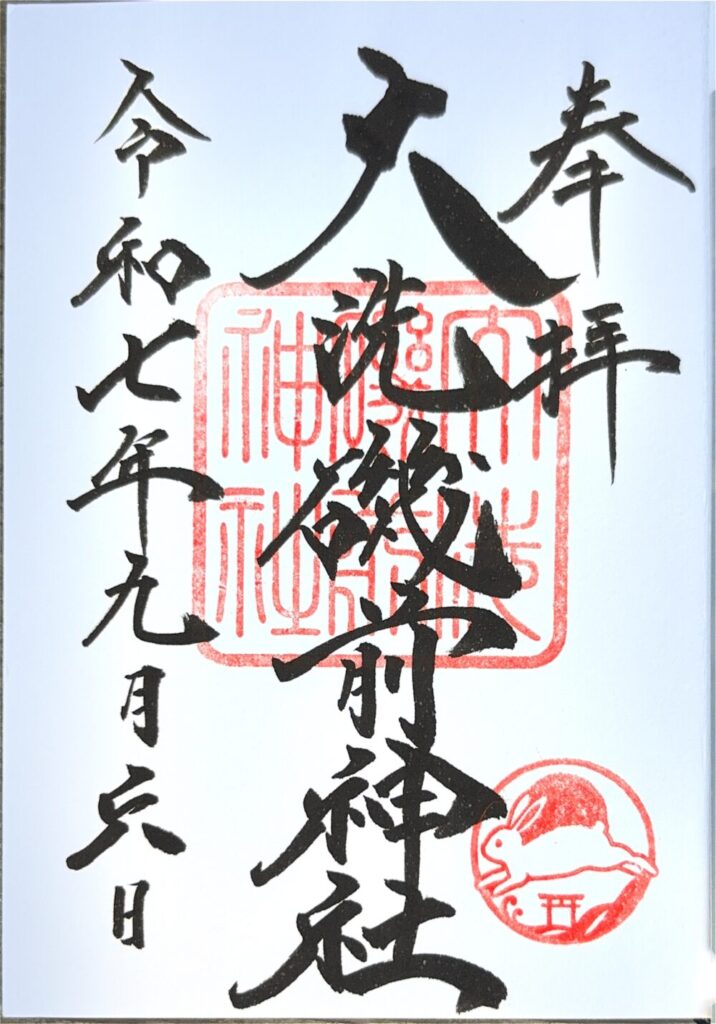 奉拝
大洗磯前神社
大洗磯前神社
令和七年九月六日